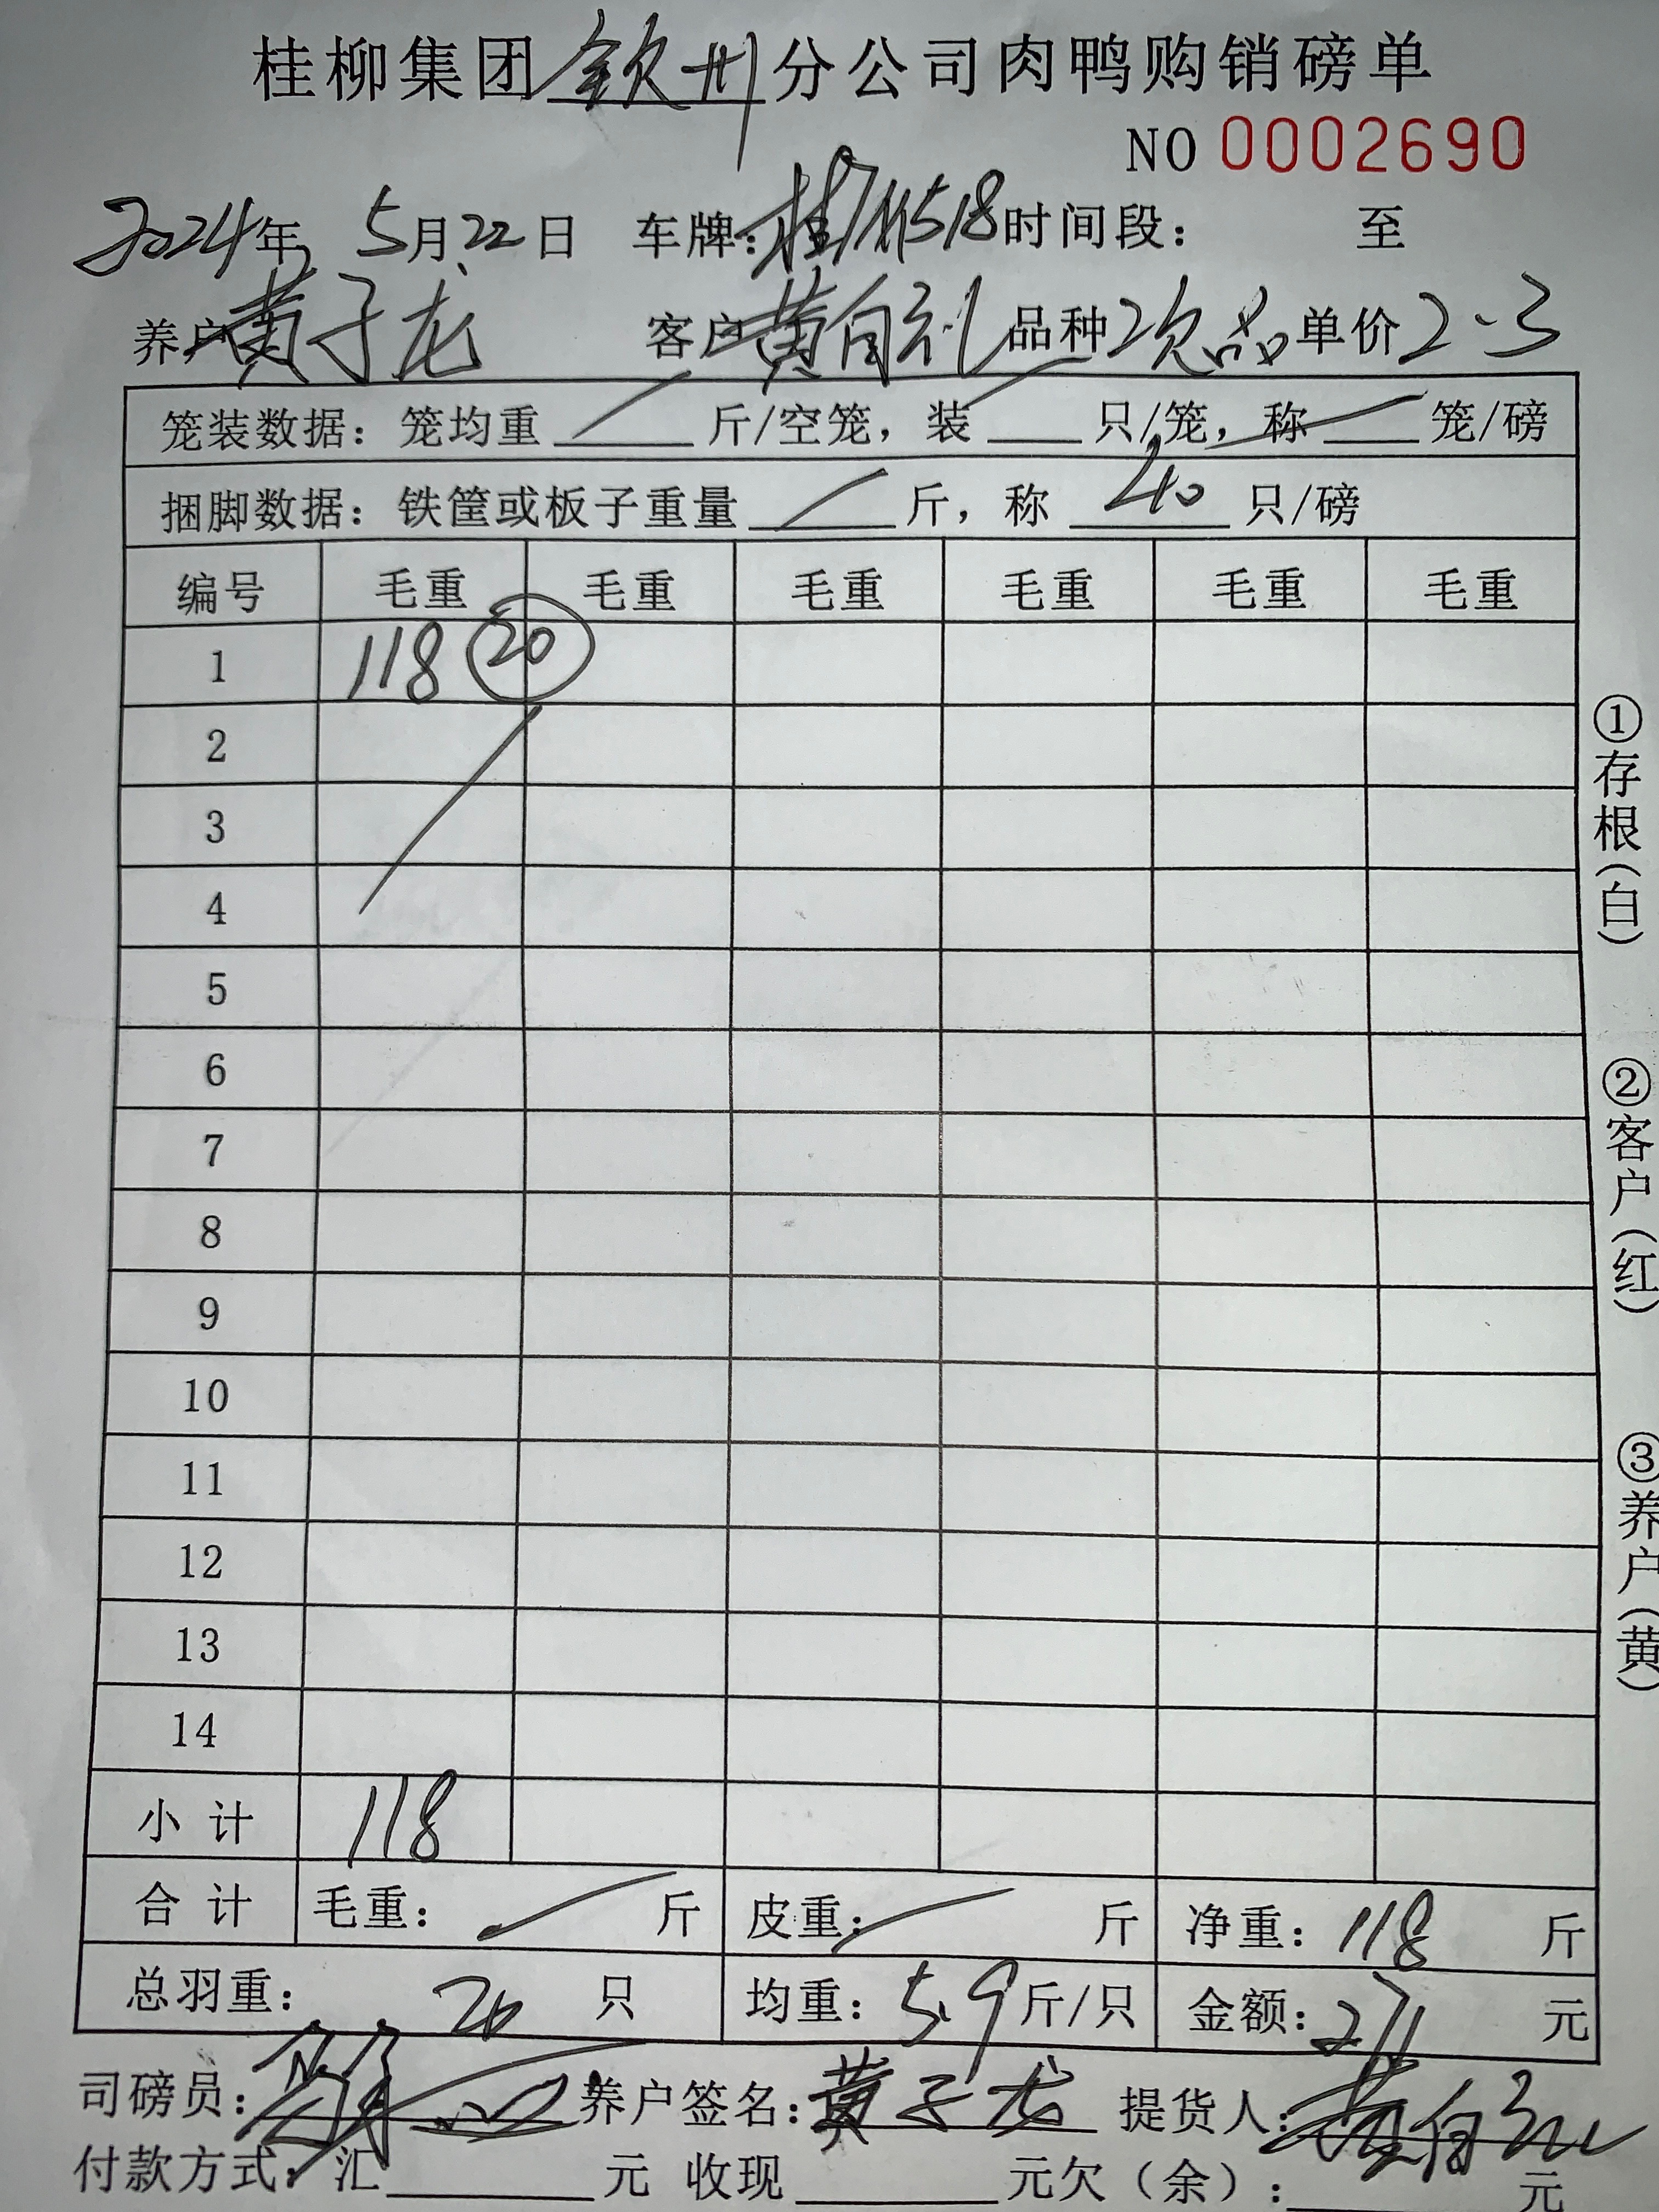 桂柳集团钦州分公司肉鸭购销磅单
NO 0002690
2024年 5月22日 车牌: 时间段: 至
养户黄子龙 客户黄自礼 品种 次品 单价2.3
笼装数据: 笼均重 / 斤/空笼, 装 / 只/笼, 称 / 笼/磅
捆脚数据: 铁筐或板子重量 / 斤, 称 40 只/磅
编号 毛重 毛重 毛重 毛重 毛重 毛重
1 118 20
2
3
4
5
6
7
8
9
10
11
12
13
14
小计 118
合计 毛重: / 斤 皮重: / 斤 净重: 118 斤
总羽重: 20 只 均重: 5.9 斤/只 金额: 271 元
司磅员: 养户签名: 黄子龙 提货人: 黄自礼
付款方式: 汇 元 收现 元欠(余): 元
①存根(白)
②客户(红)
③养户(黄)